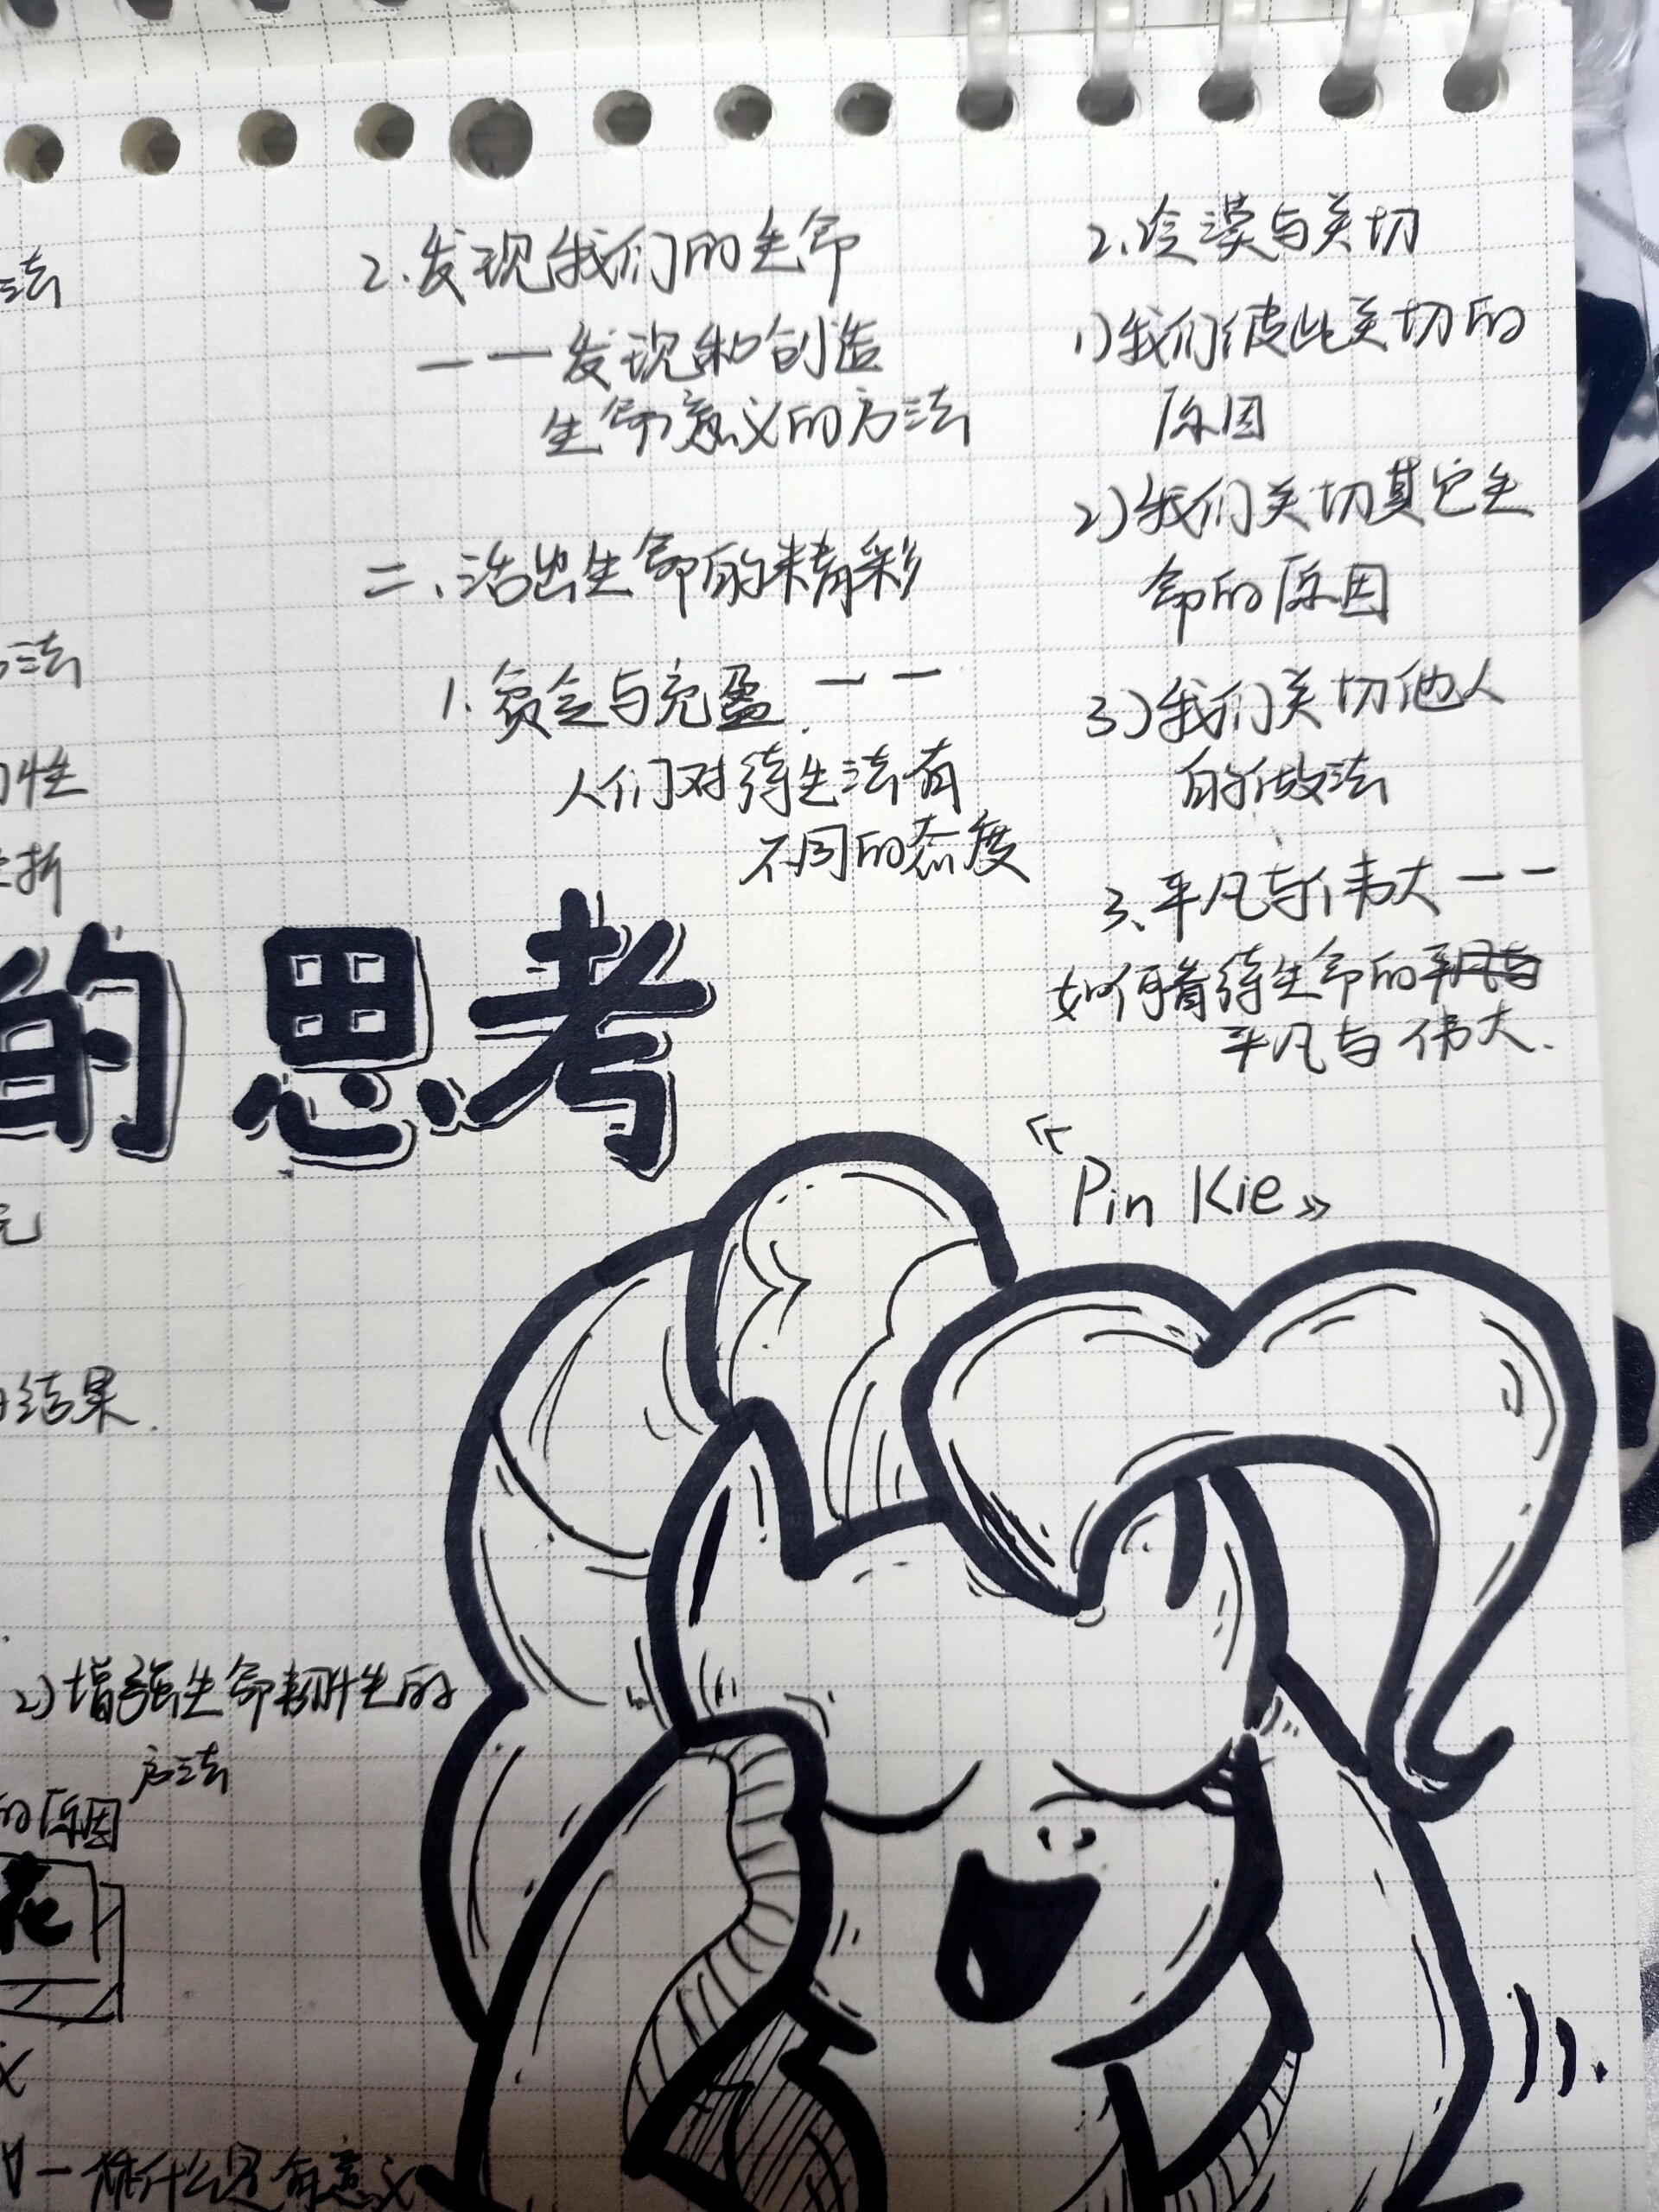 法
2.发现我们的生命
一一发现和创造
生命意义的方法
二、活出生命的精彩
1.贫乏与充盈.一一
人们对待生活有
不同的态度
2.冷漠与关切
1)我们彼此关切的
原因
2)我们关切其它生
命的原因
3)我们关切他人
的做法
3、平凡与伟大一一
如何看待生命的平凡与
平凡与伟大.
法
性
折
的思考
《Pin Kie》
结果.
2)增强生命韧性的
方法
的原因
花
义
一做什么是有意义